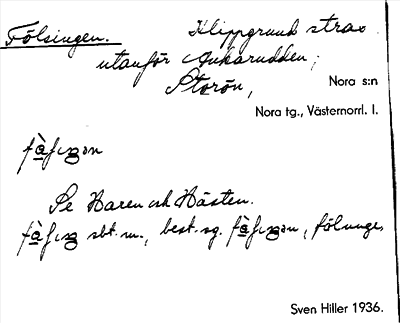 Fölsingen. Klippgrund strax
utanför Ankarudden,
Storön, Nora s:n
Nora tg., Västernorrl. l.
Se Haren och Hästen.
sbt. m., best. sg. fölunge,
Sven Hiller 1936.